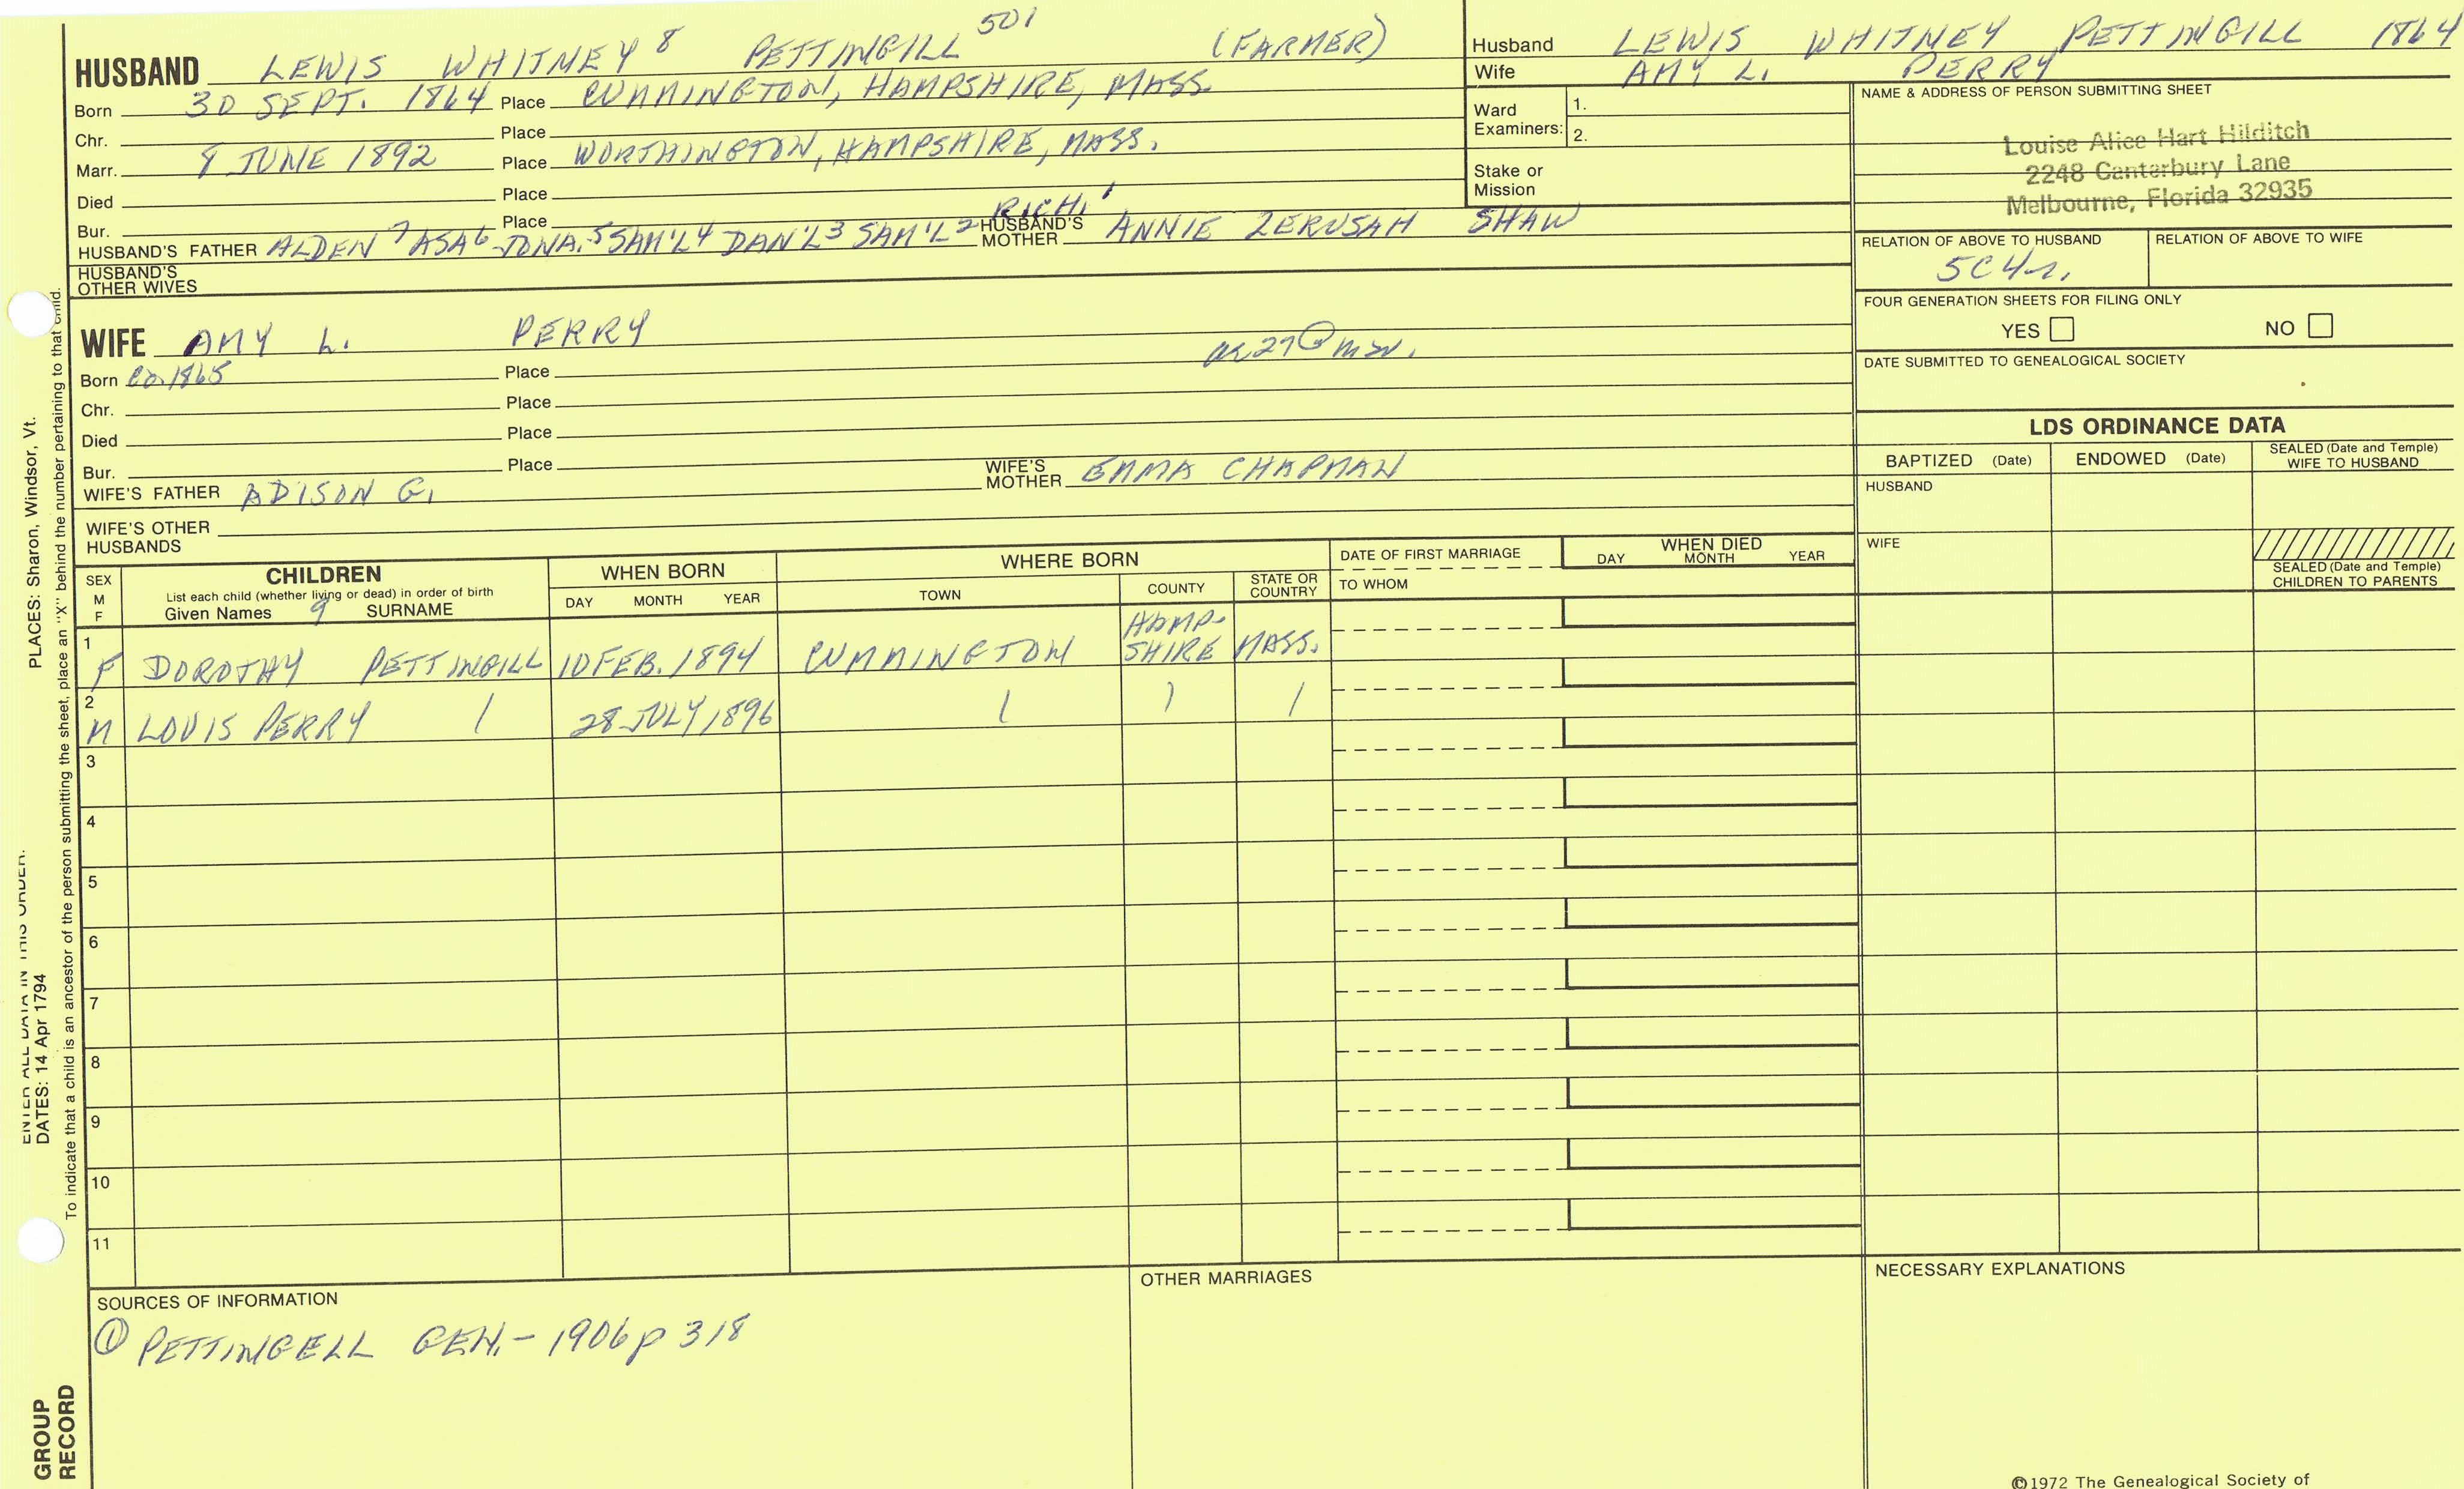 HUSBAND LEWIS WHITNEY 8 PETTINGILL 501 (FARMER)
Born 30 SEPT. 1864 Place CUMMINGTON, HAMPSHIRE, MASS
Chr. Place
Marr. 8 JUNE 1892 Place WORTHINGTON, HAMPSHIRE, MASS.
Died Place
Bur. Place
HUSBAND'S FATHER ALDEN 7 ASA 6 JONA. 5 SAM'L 4 DAN'L 3 SAM'L 2 RICH. 1 HUSBAND'S MOTHER ANNIE ZERUSAH SHAW
HUSBAND'S OTHER WIVES
WIFE AMY L. PERRY
Born ca. 1865 Place
Chr. Place
Died Place
Bur. Place
WIFE'S FATHER ADISON G. WIFE'S MOTHER EMMA CHAPMAN
WIFE'S OTHER HUSBANDS
Husband LEWIS WHITNEY PETTINGILL 1864
Wife AMY L. PERRY
Ward Examiners: 1.
2.
Stake or Mission
NAME & ADDRESS OF PERSON SUBMITTING SHEET
Louise Alice Hart Hilditch
2248 Canterbury Lane
Melbourne, Florida 32935
RELATION OF ABOVE TO HUSBAND RELATION OF ABOVE TO WIFE
5C4r.
FOUR GENERATION SHEETS FOR FILING ONLY
YES NO
DATE SUBMITTED TO GENEALOGICAL SOCIETY
LDS ORDINANCE DATA
BAPTIZED (Date) ENDOWED (Date) SEALED (Date and Temple) WIFE TO HUSBAND
HUSBAND
WIFE
SEALED (Date and Temple) CHILDREN TO PARENTS
SEX M F
CHILDREN
List each child (whether living or dead) in order of birth
Given Names 9 SURNAME
WHEN BORN
DAY MONTH YEAR
WHERE BORN
TOWN COUNTY STATE OR COUNTRY
DATE OF FIRST MARRIAGE
TO WHOM
WHEN DIED
DAY MONTH YEAR
1 F DOROTHY PETTINGILL 10 FEB. 1894 CUMMINGTON HAMP-SHIRE MASS.
2 M LOUIS PERRY 28 JULY 1896
3
4
5
6
7
8
9
10
11
SOURCES OF INFORMATION
① PETTINGELL GEN. - 1906 p 318
OTHER MARRIAGES
NECESSARY EXPLANATIONS
©1972 The Genealogical Society of
PLACES: Sharon, Windsor, Vt.
ENTER ALL DATA IN THIS ORDER:
DATES: 14 Apr 1794
To indicate that a child is an ancestor of the person submitting the sheet, place an "X" behind the number pertaining to that child.
GROUP
RECORD